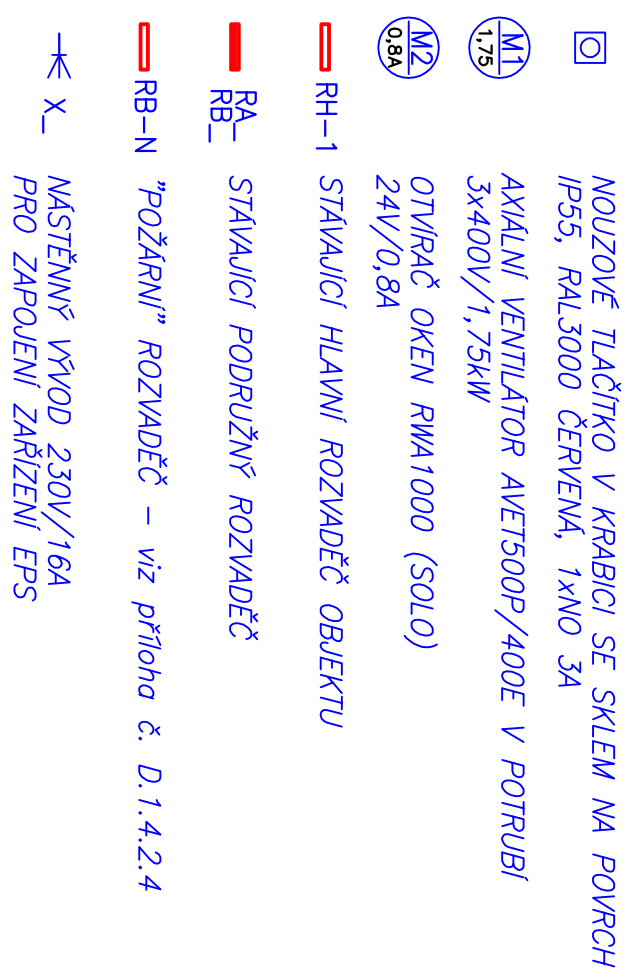 NOUZOVÉ TLAČÍTKO V KRABICI SE SKLEM NA POVRCH
IP55, RAL3000 ČERVENÁ, 1xNO 3A
M1
1,75
AXIÁLNÍ VENTILÁTOR AVET500P/400E V POTRUBÍ
3x400V/1,75kW
M2
0,8A
OTVÍRAČ OKEN RWA1000 (SOLO)
24V/0,8A
RH-1 STÁVAJÍCÍ HLAVNÍ ROZVADĚČ OBJEKTU
RA_
RB_
STÁVAJÍCÍ PODRUŽNÝ ROZVADĚČ
RB-N "POŽÁRNÍ" ROZVADĚČ - viz příloha č. D.1.4.2.4
X_
NÁSTĚNNÝ VÝVOD 230V/16A
PRO ZAPOJENÍ ZAŘÍZENÍ EPS